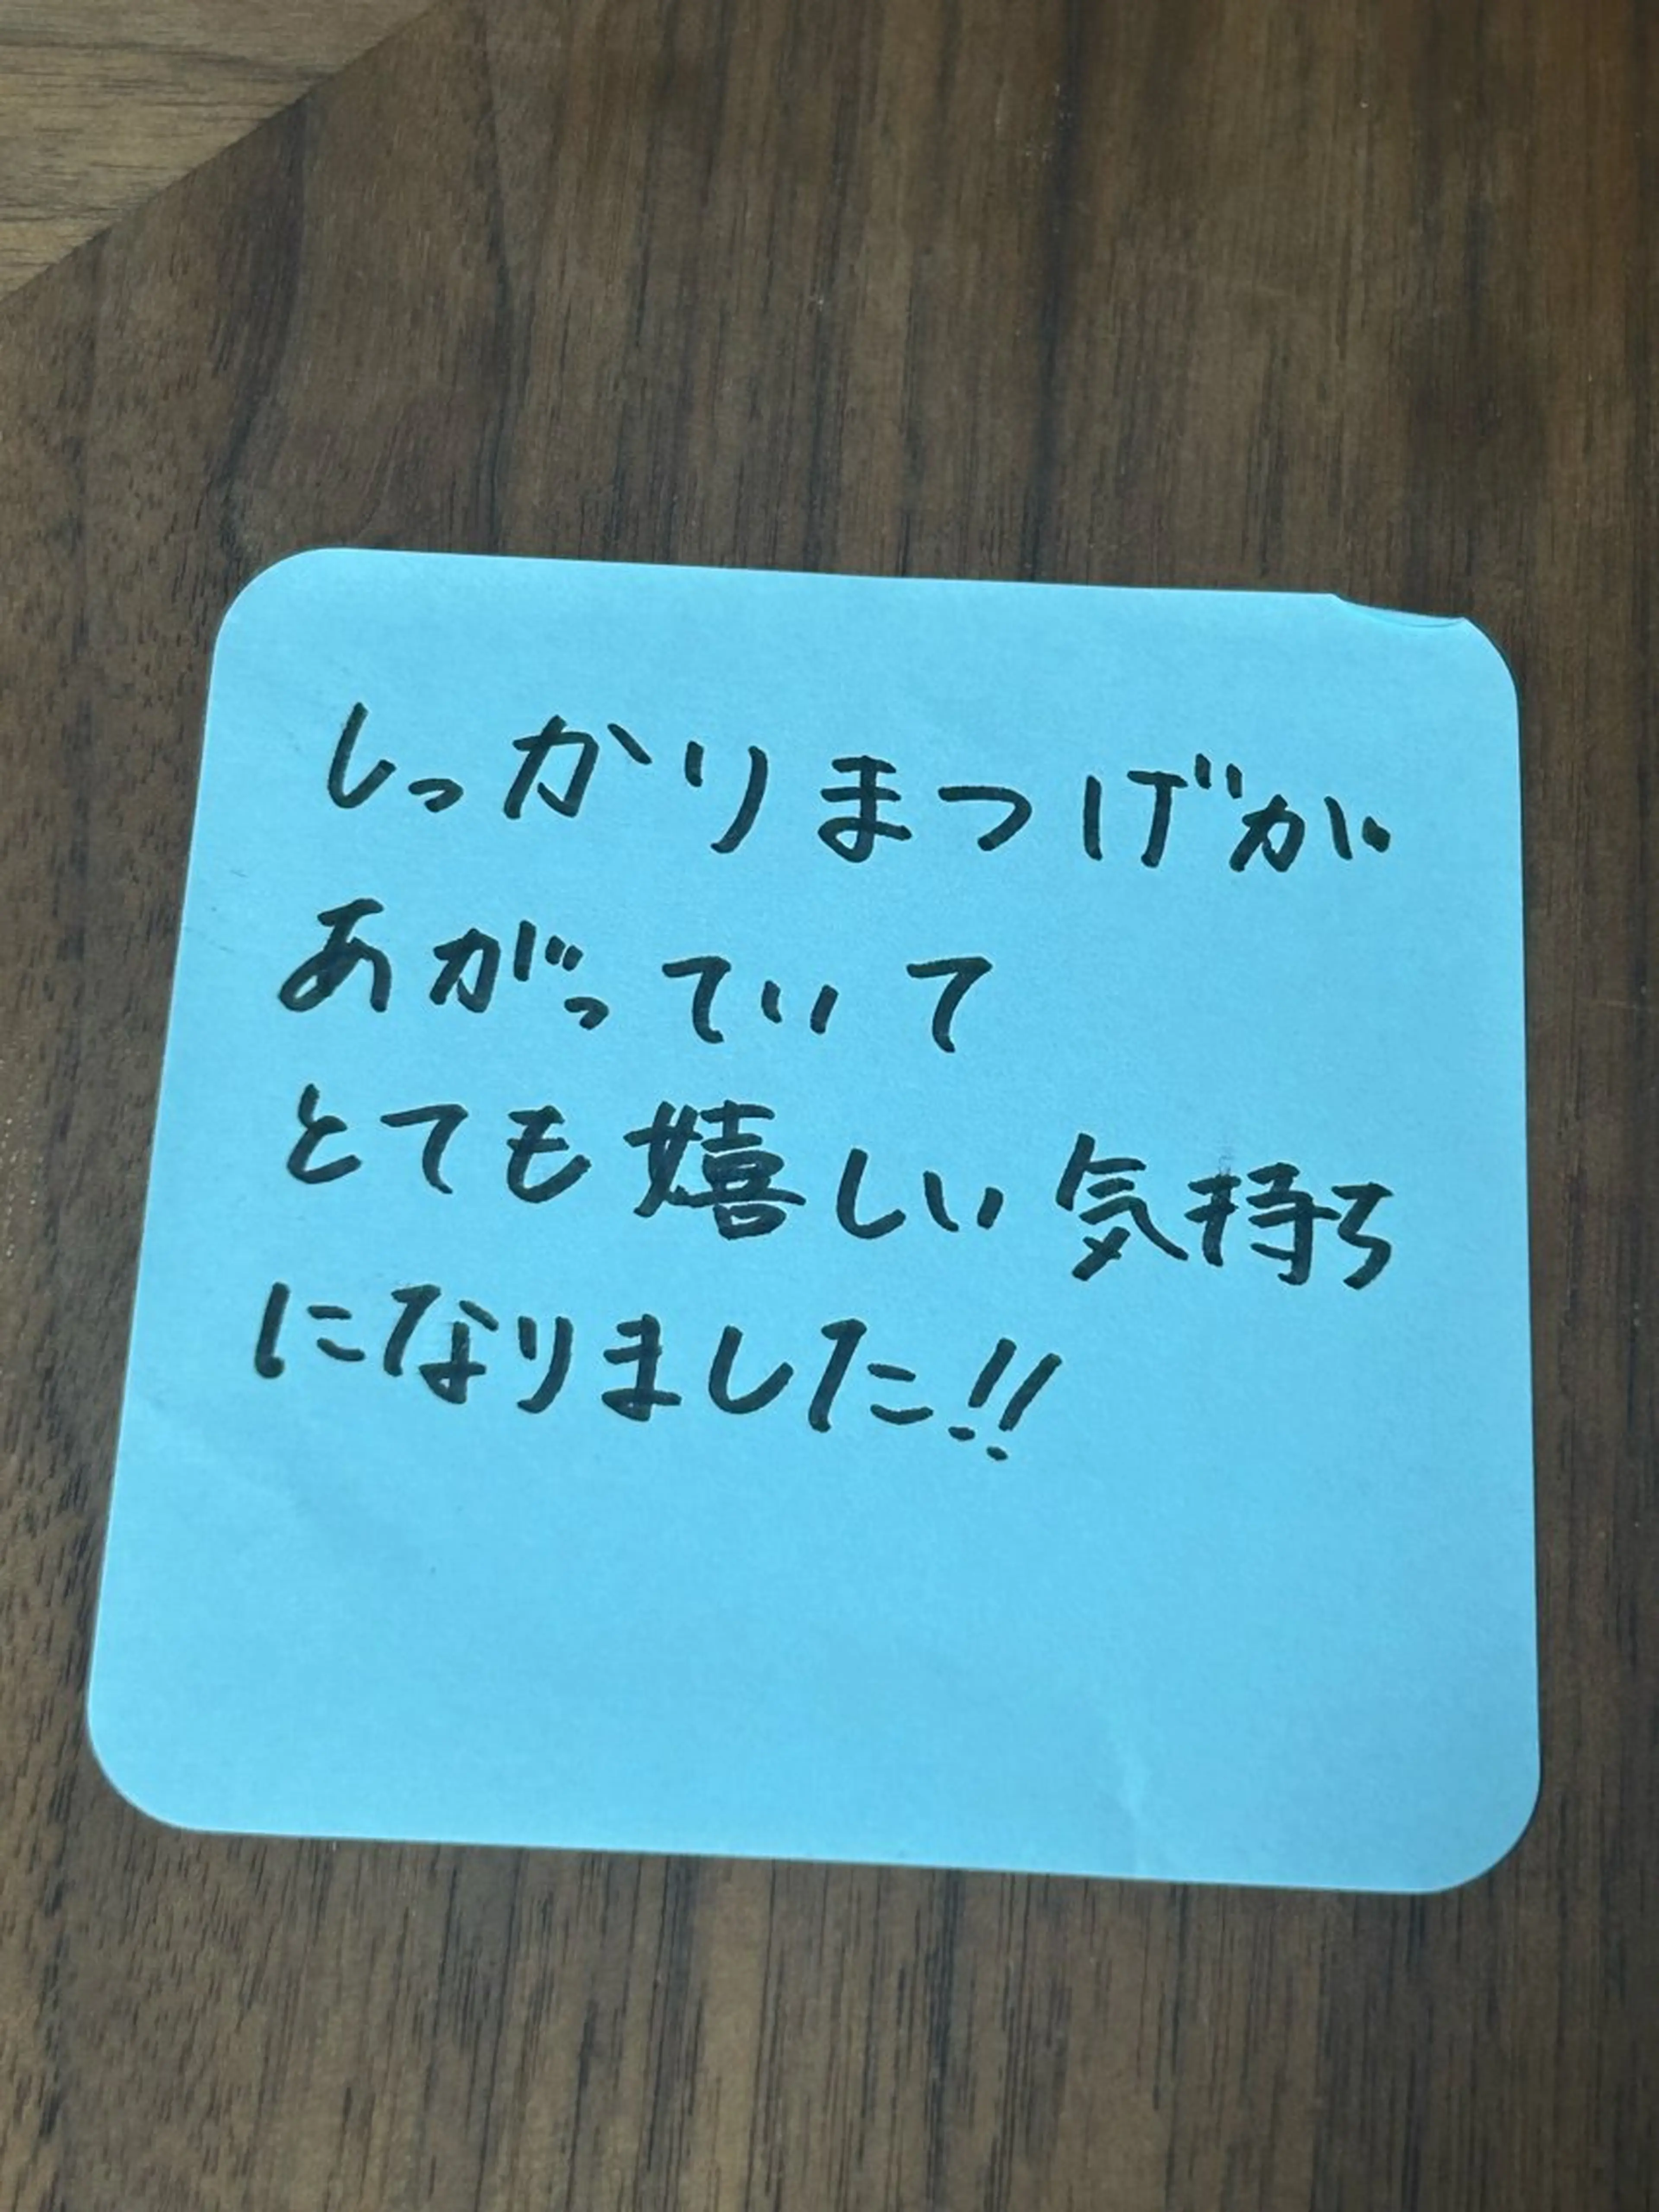 しっかりまつげが
あがっていて
とても嬉しい気持ち
になりました!!